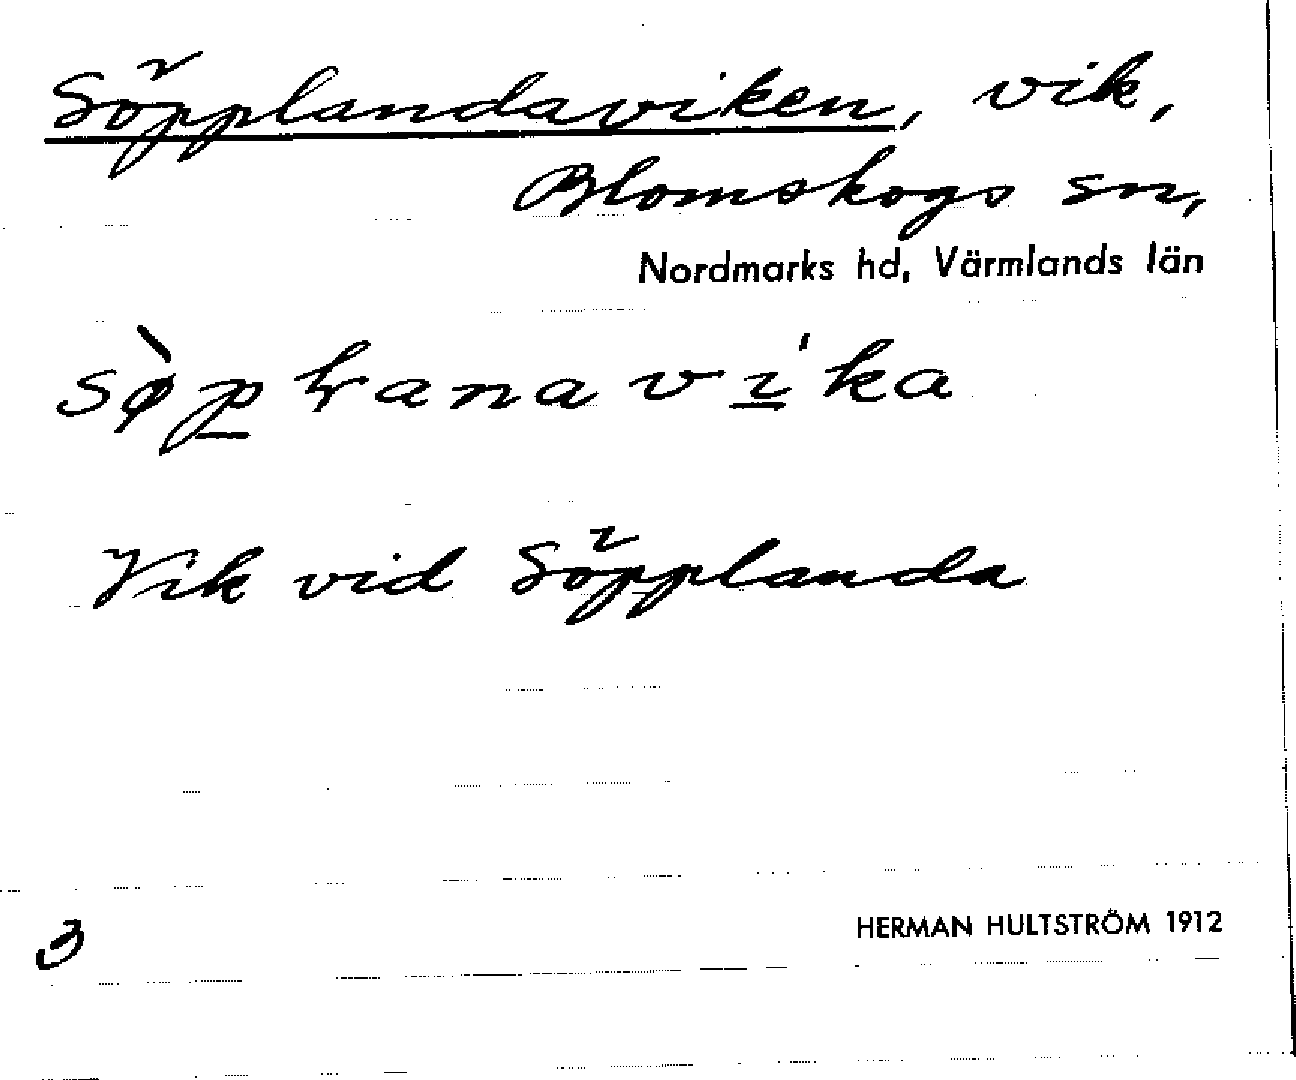 Söpplandaviken, vik,
Blomskogs sn,
Nordmarks hd, Värmlands län
sø̀pɫanavíka
Vik vid Söpplanda
3 HERMAN HULTSTRÖM 1912